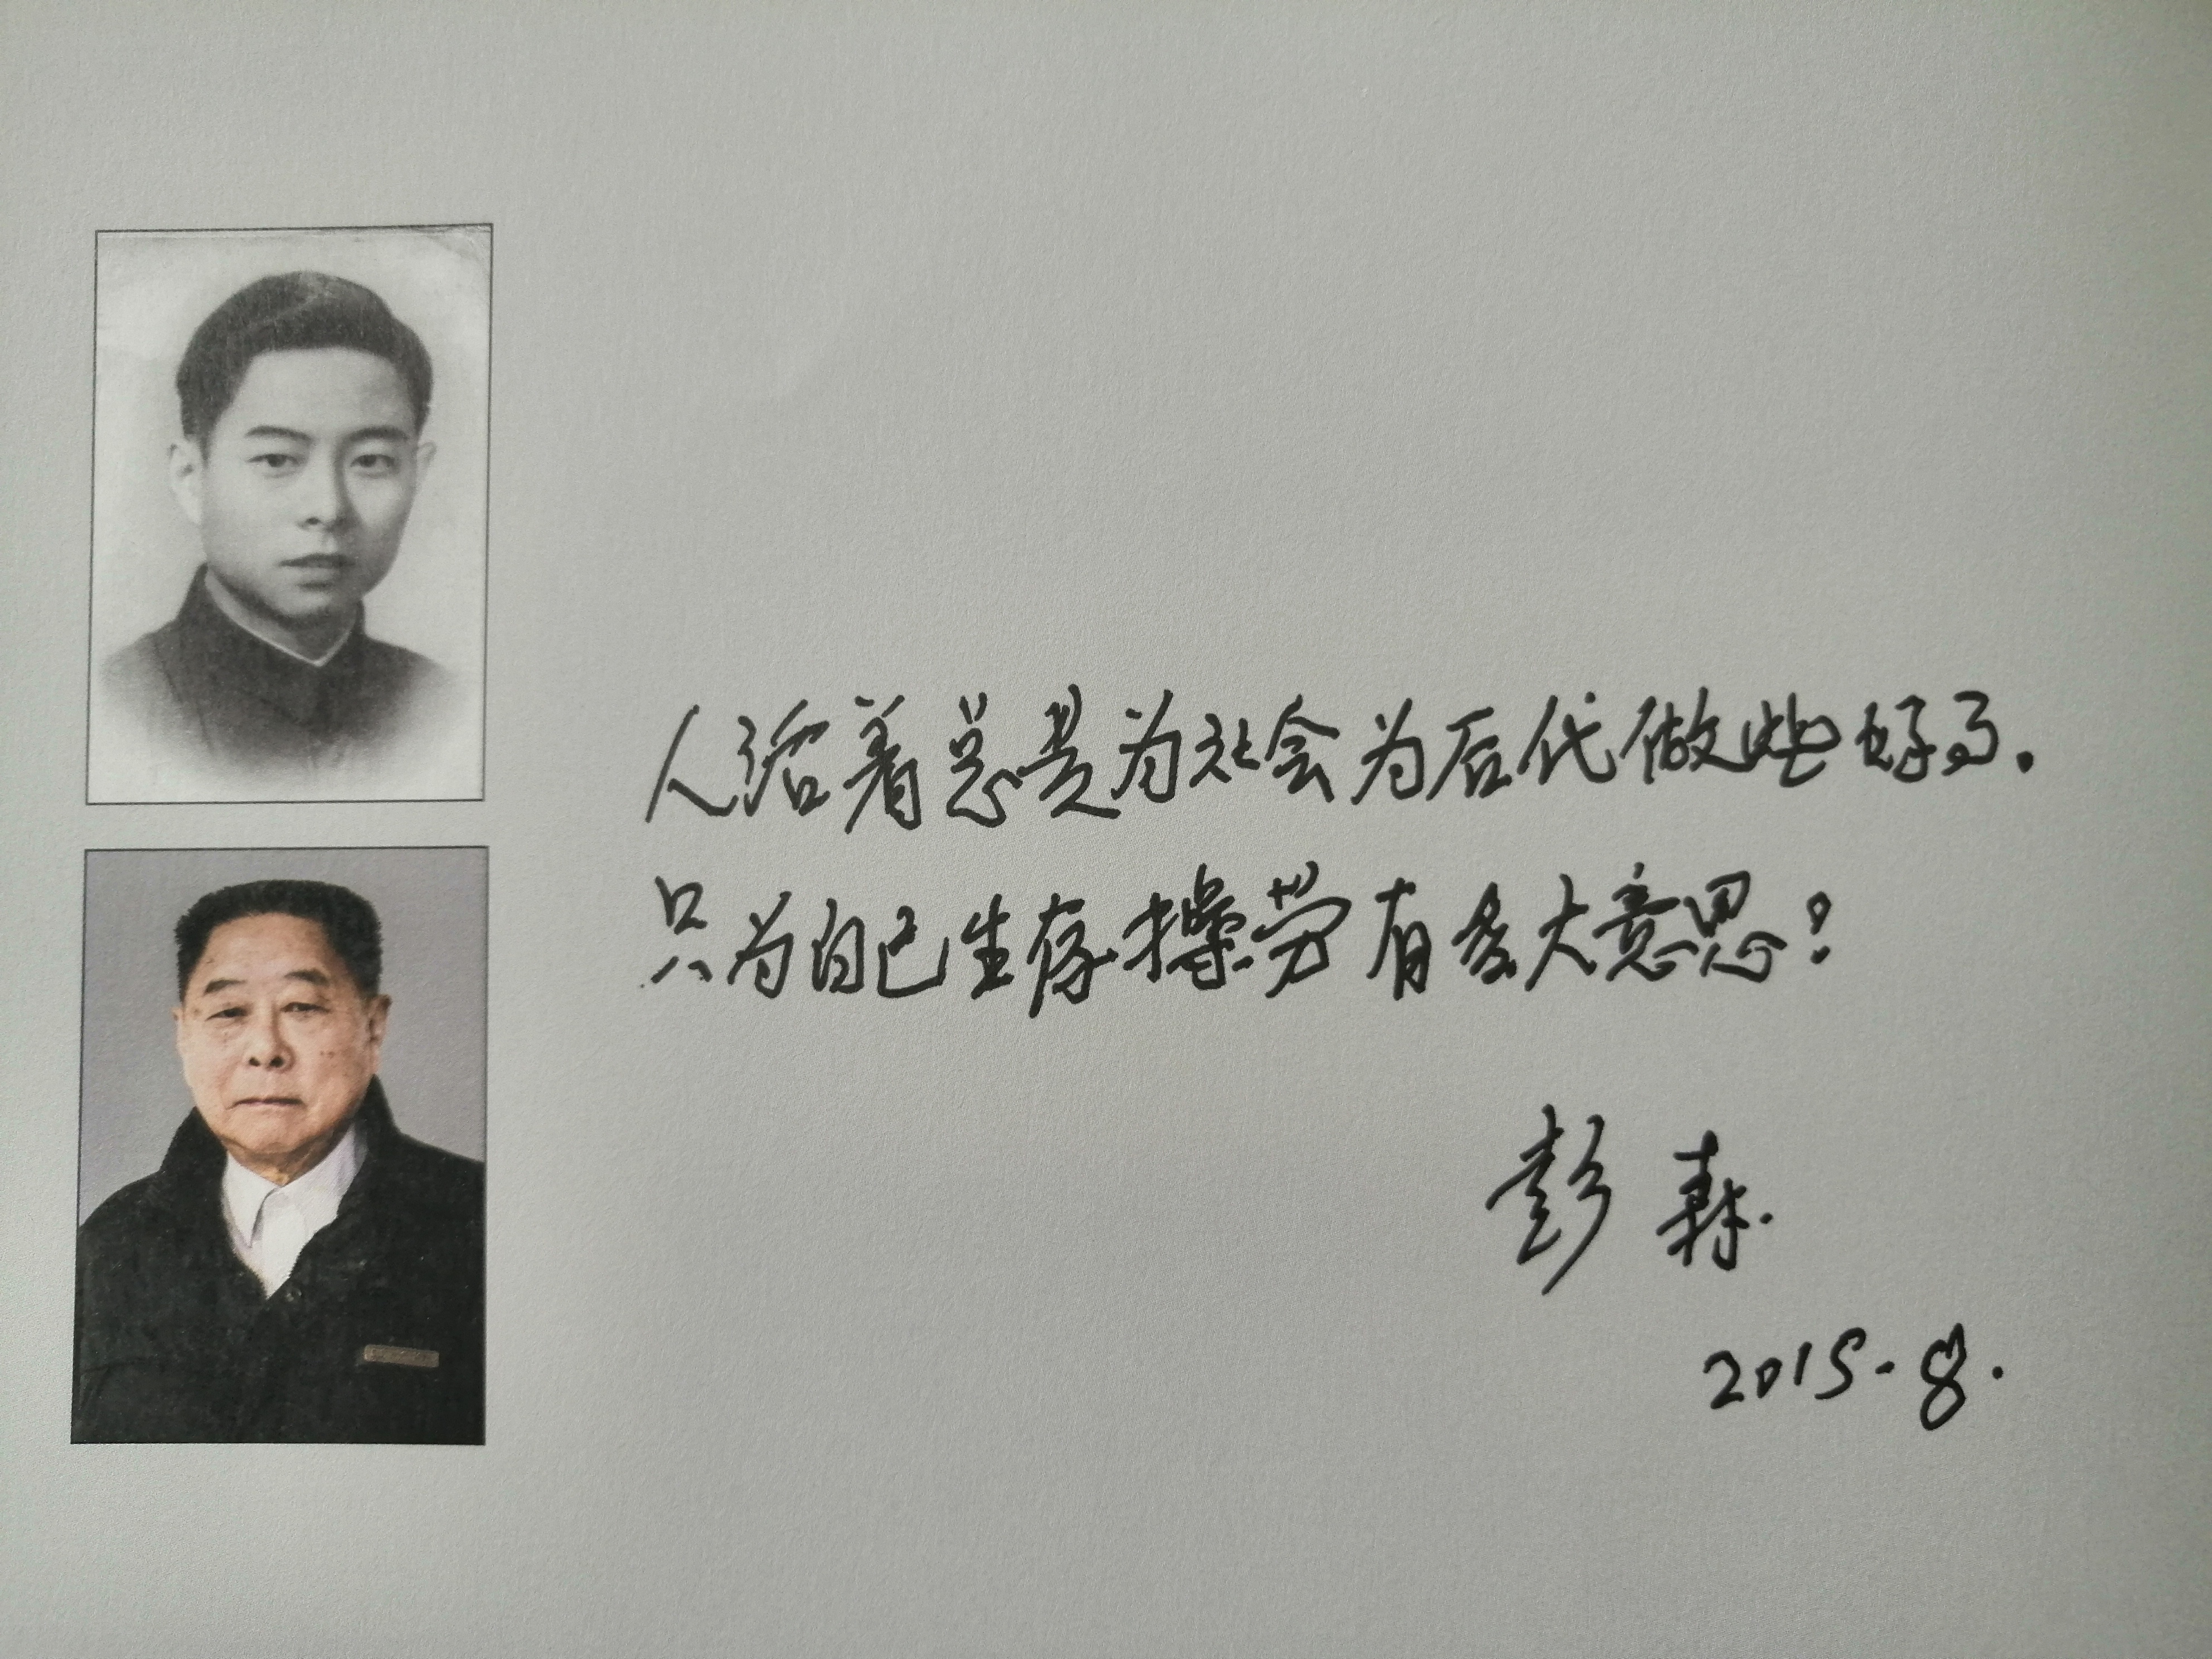 人活着总是为社会为后代做些好事.
只为自己生存操劳有多大意思?
彭森.
2015.8.